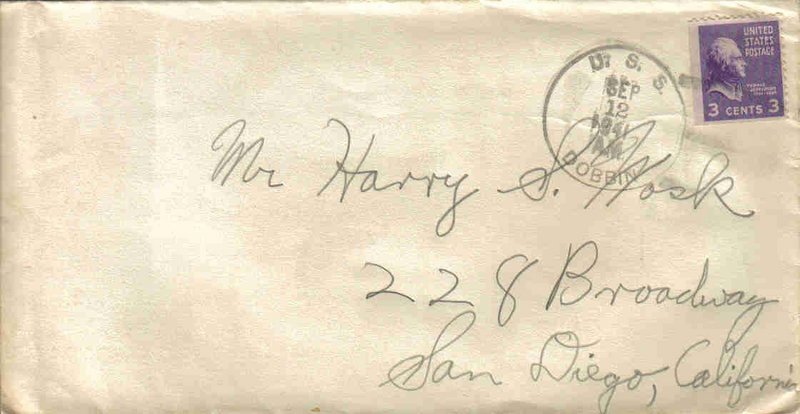 UNITED
STATES
POSTAGE
THOMAS
JEFFERSON
3 CENTS 3
U. S. S.
SEP
12
1941
A.M.
DOBBIN
Mr Harry S. Mosk
228 Broadway
San Diego, California